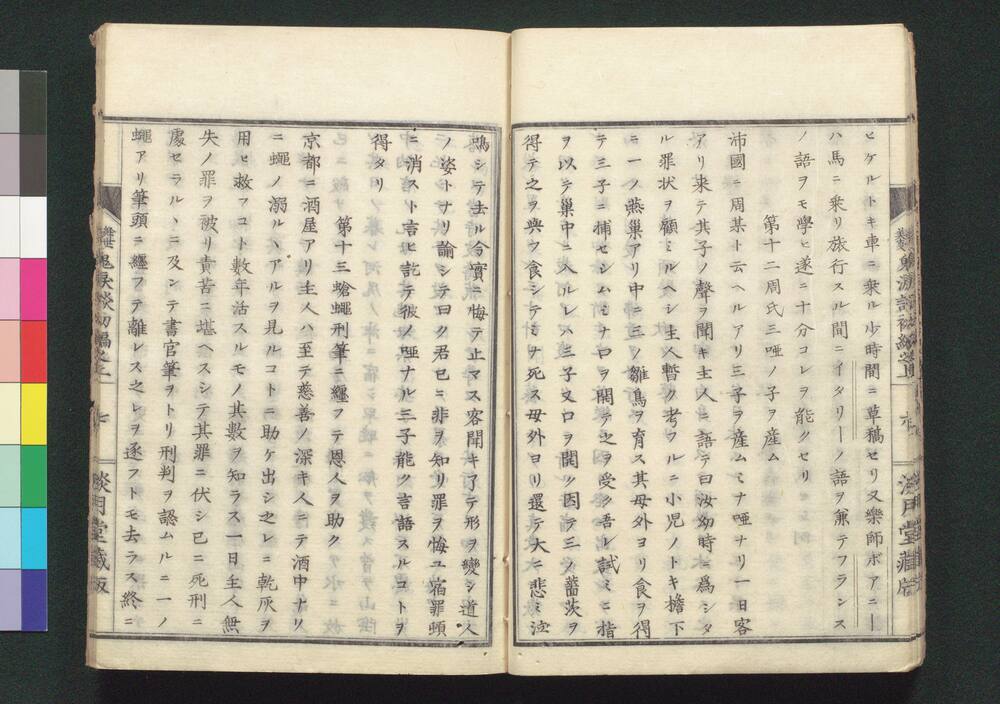 ヒケルトキ車ニ乗ル少時間ニ草稿セリ又樂師ボアニー
ハ馬ニ乗リ旅行スル間ニイタリーノ語ヲ兼テフランス
ノ語ヲモ學ヒ遂ニ十分コレヲ能クセリ
第十二周氏三唖ノ子ヲ産ム
沛國ニ周某ト云ヘルアリ三子ヲ産ムミナ唖ナリ一日客
アリ来テ其子ノ聲ヲ聞キ主人ニ語テ曰汝幼時ニ爲シタ
ル罪状ヲ顧ミルヘシ主人暫ク考フルニ小児ノトキ擔下
ニ一ノ燕巣アリ中ニ三ノ雛鳥ヲ育ス其母外ヨリ食ヲ得
テ三子ニ捕セシムミナ口ヲ開テ之ヲ受ク吾レ試ミニ指
ヲ以テ巣中ニ入ルレハ三子又口ヲ開ク因テ三ノ薔茨ヲ
得テ之ヲ與フ食シテミナ死ス母外ヨリ還テ大ニ悲ミ泣
鵡シテ去ル今實ニ悔テ止マス客聞キ了テ形ヲ變シ道人
ノ姿トナリ諭シテ曰ク君已ニ非ヲ知リ罪ヲ悔ユ宿罪頓
ニ消スト言ヒ訖テ彼ノ唖ナル三子能ク言語スルコトヲ
得タリ
第十三螥蠅刑筆ニ纒フテ恩人ヲ助ク
京都ニ酒屋アリ主人ハ至テ慈善ノ深キ人ニテ酒中ナリ
ニ蠅ノ溺ルヽアルヲ見ルコトニ助ケ出シ之レニ乾灰ヲ
用ヒ救フコト数年活スルモノ其數ヲ知ラス一日主人無
失ノ罪ヲ被リ責苦ニ堪ヘスシテ其罪ニ伏シ已ニ死刑ニ
處セラルヽニ及ンテ書官筆ヲトリ刑判ヲ認ムルニ一ノ
蠅アリ筆頭ニ纒フテ離レス之レヲ逐フトモ去ラス終ニ
談初編之上
七
淡用堂藏版